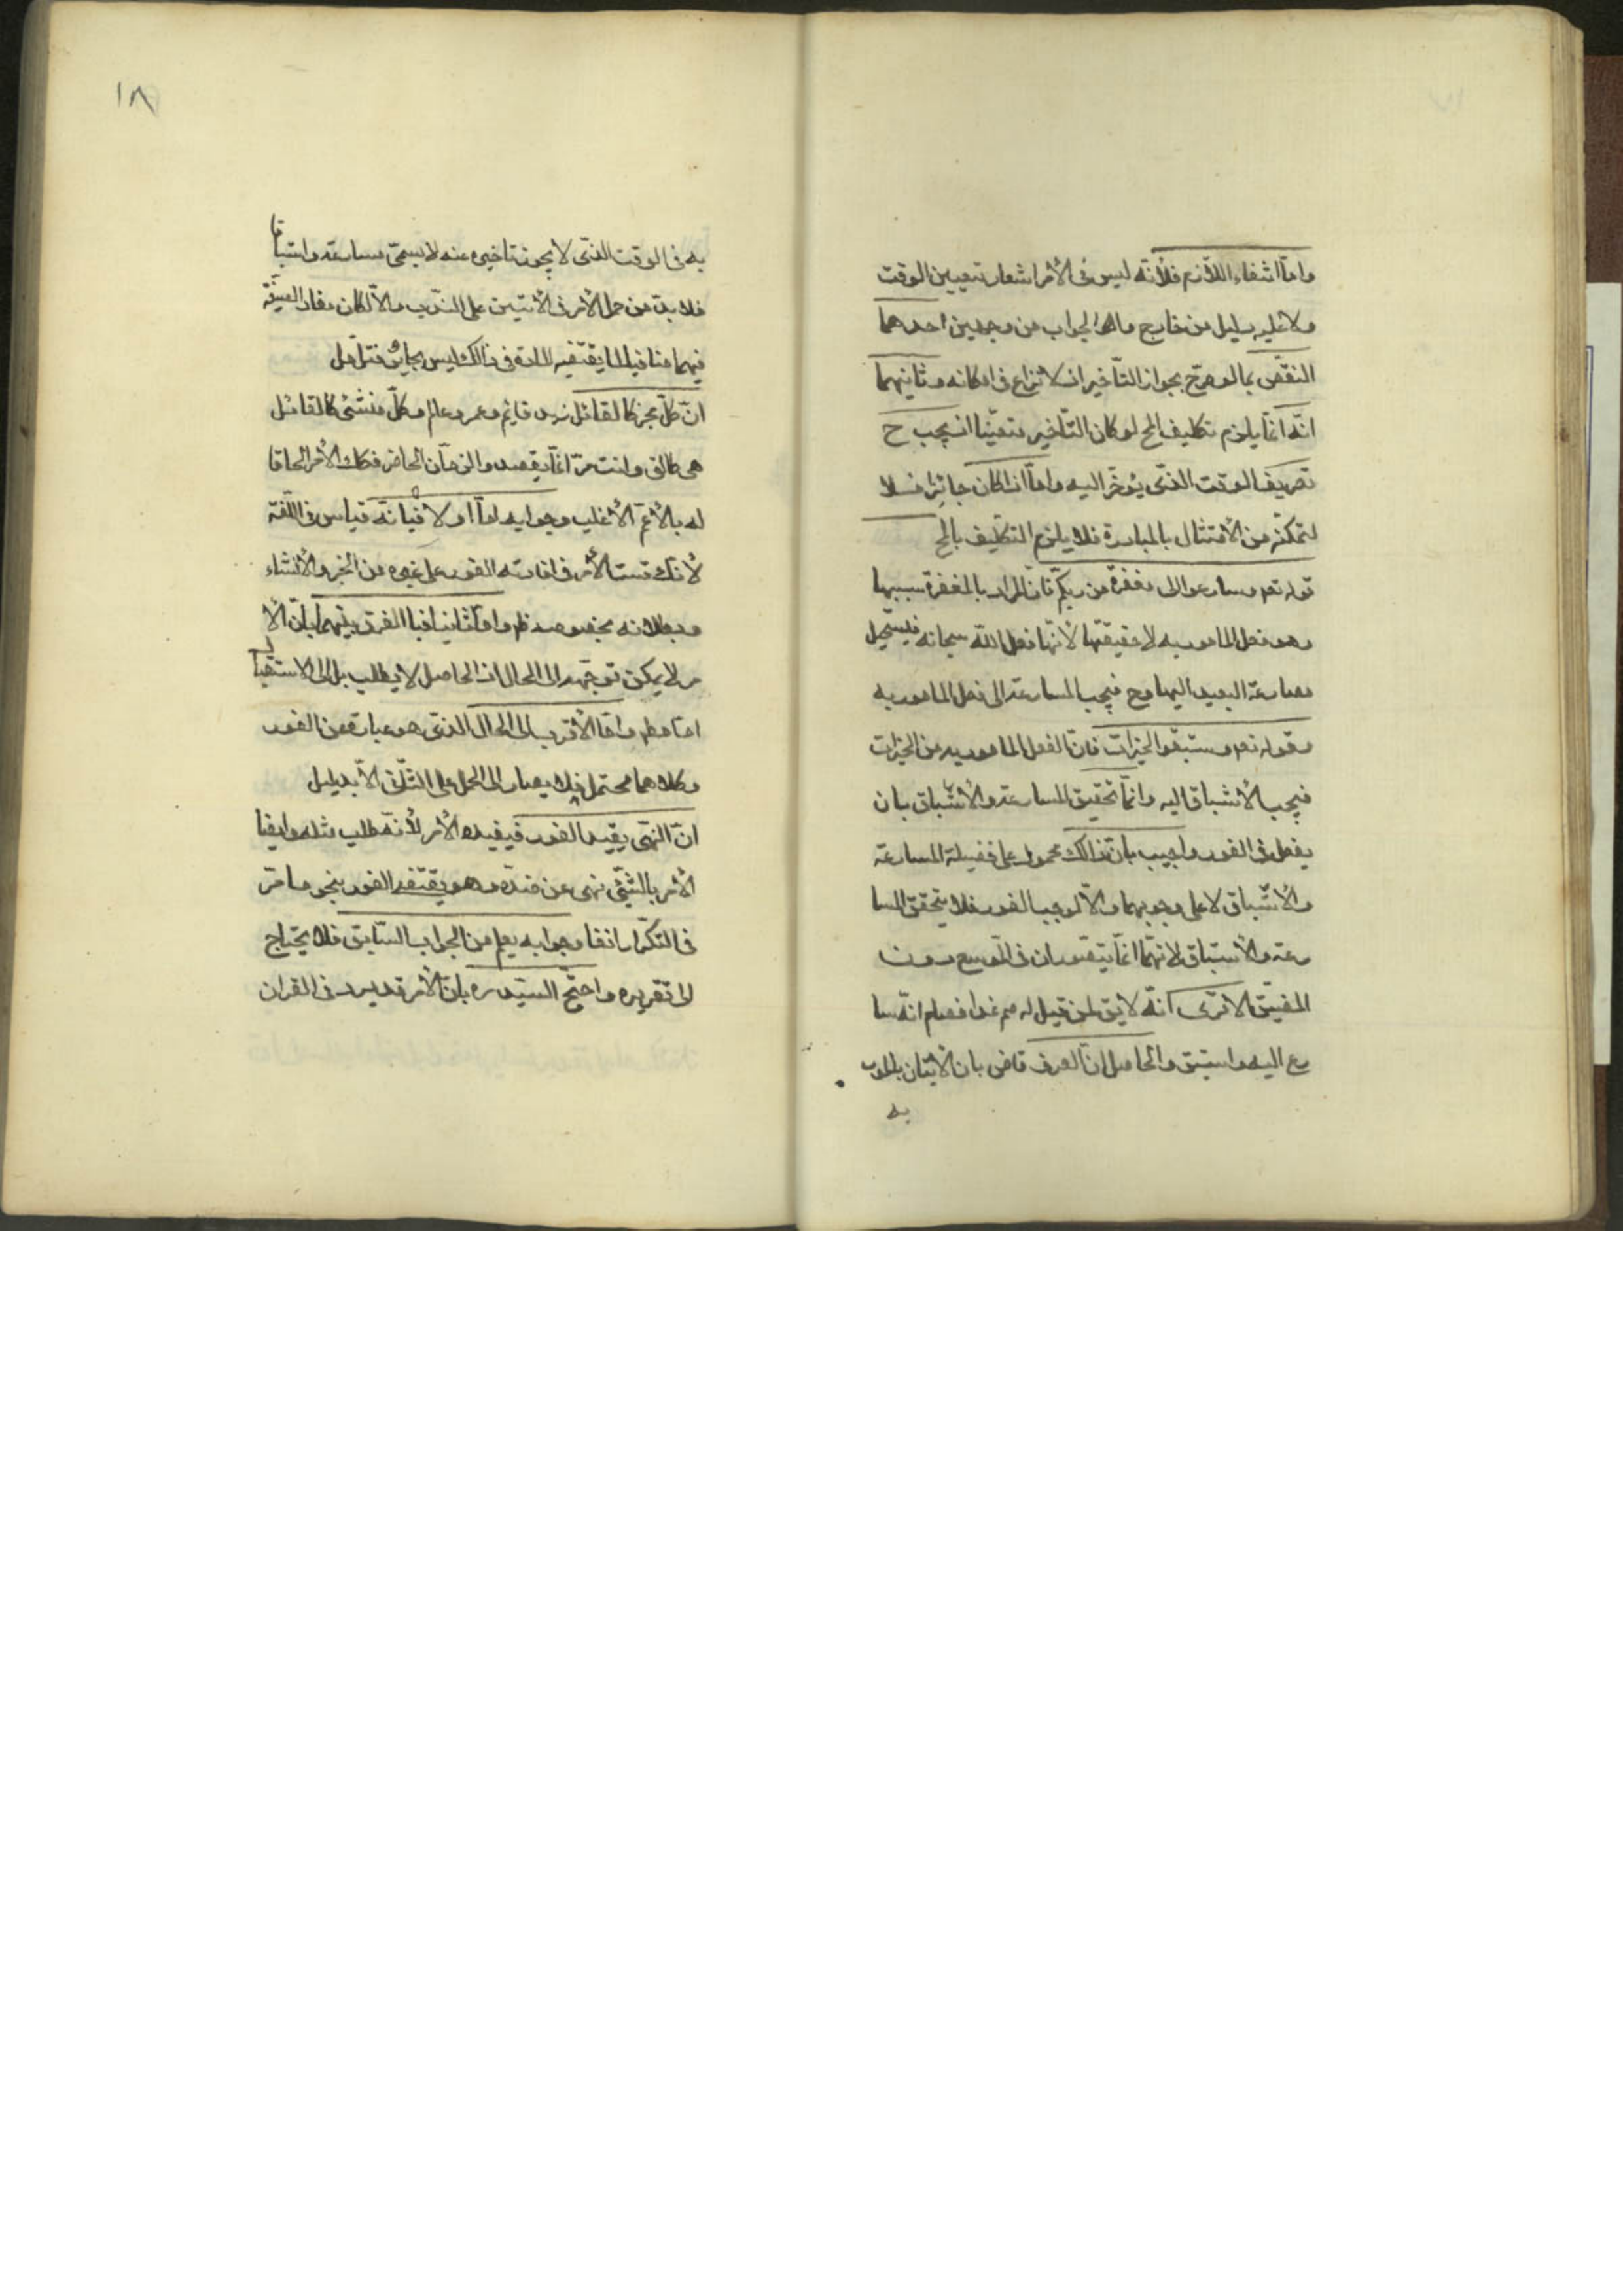 واما انتفاء اللازم فلانه ليس فى الأمر اشعار بتعيين الوقت
ولا عليه دليل من خارج والجواب من وجهين احدهما
النقض بما لو صرح بجواز التأخير اذ لا نزاع فى امكانه وثانيهما
انه انما يلزم تكليف المح لو كان التأخير متعينا اذ يجب ح
تعريف الوقت الذى يؤخر اليه واما اذا كان جائزا فلا
لتمكنه من الأمتثال بالمبادرة فلا يلزم التكليف بالمح
قوله تعه وسارعوا الى مغفرة من ربكم فان المراد بالمغفرة سببها
وهو فعل المامور به لا حقيقتها لأنها فعل الله سبحانه فيستحيل
مسارعة العبد اليها وح فيجب المسارعة الى فعل المامور به
وقوله تعه وستبقوا الخيرات فان الفعل المامور به من الخيرات
فيجب الأستباق اليه وانما تحقيق المسارعة والأستباق بان
يفعل فى الفور واجيب بان ذالك محمول على فضيلة المسارعة
والأستباق لا على وجوبهما والا لوجب الفور فلا يتحقق المسا
رعة والأستباق لانهما انما يتصوران فى الموسع دون
المضيق الا ترى انه لا يق لمن قيل له صم غدا فصام انه سا
رع اليه واستبق والحاصل ان العرف قاض بان الأتيان بالمامور
به
١٨
به فى الوقت الذى لا يجوز تاخيره عنه لا يسمى مسارعة واستباقا
فلا بد من حمل الأمر فى الأيتين على الندب والا لكان مفاد الصيغة
فيهما منافيا لما يقتضيه المادة فى ذالك ليس بجايز فتأمل
ان كل مخبر كالقائل زيد قايم وعمرو عالم وكل منشئ كالقائل
هى طالق وانت حر انما يقصد والزمان الحاضر فكك الأمر الحاقا
له بالأعم الأغلب وجوابه اما اولا فبانه قياس فى اللغة
لأنك قست الأمر فى افادته الفور على غيره من الخبر والأنشاء
وبطلانه بخصوصه ظه واما ثانيا فبا الفرق بينهما بان الأ
مر لا يمكن توجهه الى الحال اذ الحاصل لا يطلب بل الى الاستقبال
اما مطه واما الأقرب الى الحال الذى هو عبارة عن الفور
وكلاهما محتمل فلا يصار الى الحمل على الثانى الا بدليل
ان النهى يفيد الفور فيفيده الأمر لأنه طلب مثله وايضا
الأمر بالشئى نهى عن ضده وهو يقتضى الفور بنحو ما مر
فى التكرار انفا وجوابه يعلم من الجواب السابق فلا يحتاج
الى تقريره واحتج السيد ره بان الأمر قد يرد فى القران